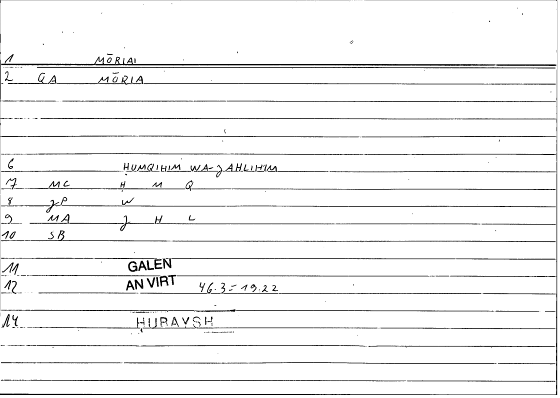 1 MŌRIAI
2 GA MŌRIA
6 ḤUMQIHIM WA-ǦAHLIHIM
7 MC Ḥ M Q
8 ǦP W
9 MA Ǧ H L
10 SB
11 GALEN
12 AN VIRT 46.3 = 19.22
14 ḤURAYSH